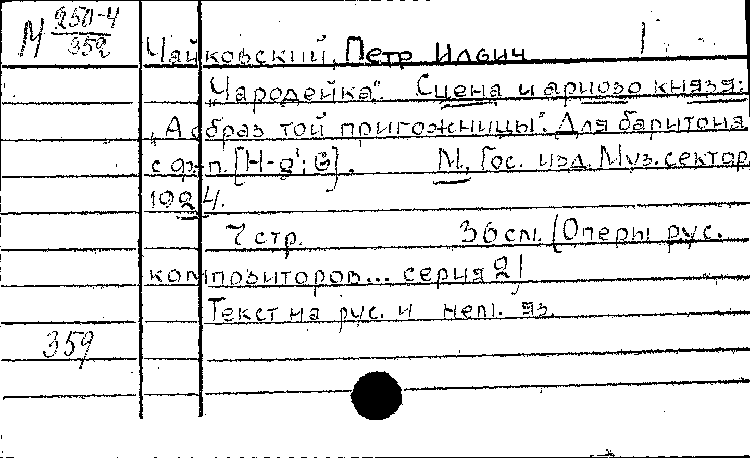 М 250-4/352
Чайковский, Петр Ильич
„Чародейка". Сцена и ариозо князя:
„А образ той пригожницы". Для баритона
с ф-п. [H-g¹; G]. М., Гос. изд. Муз. сектор,
1924.
7 стр. 36 см. (Оперы рус.
композиторов... серия 2)
Текст на рус. и нем. яз.
359